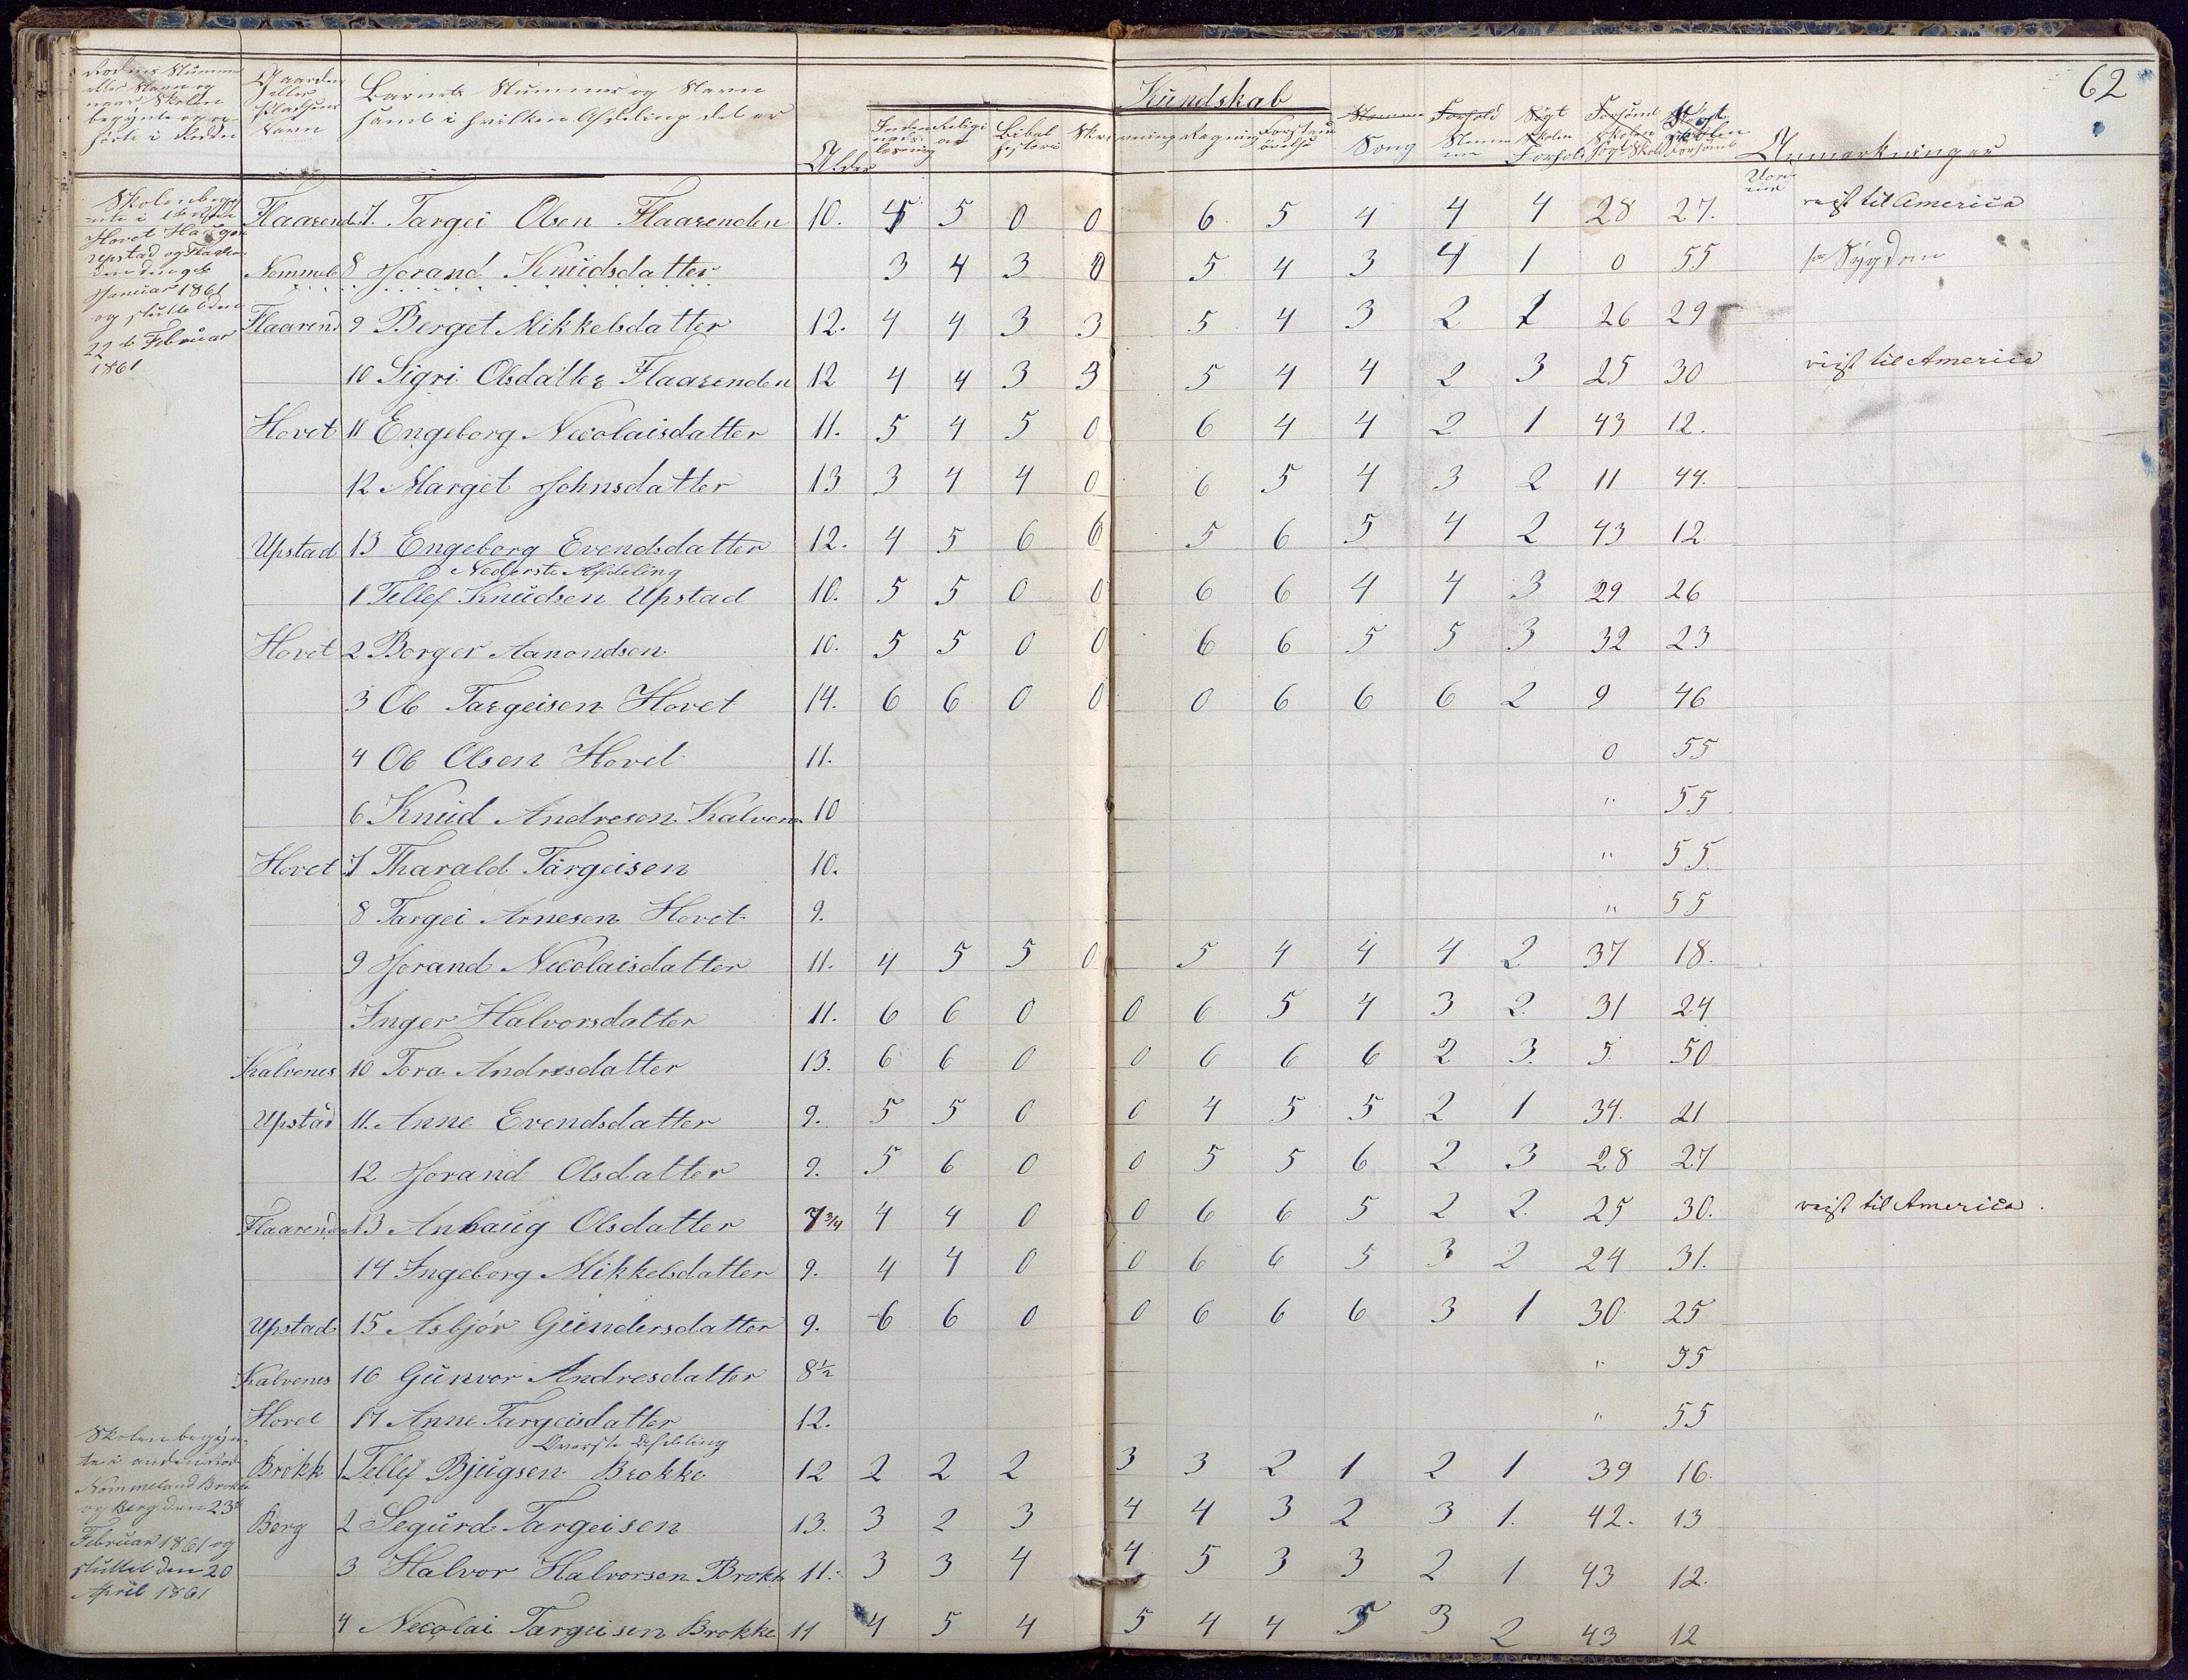 62
Kundskab
Rodens Nummer Gaardens Barnets Nummer og Navn
eller Navn og eller samt i hvilken Afdeling det er
naar Skolen Pladsens
begynte og op- Navn
hørte i Roden
Alder Religion Bibel historie Regning Sang Anmærkninger
Skolen beg
Hovet
Upstad og
Januar 1861
og sluttet den
22 de Februar
1861
Flaarend 7. Targei Olsen Flaarenden 10. 5 5 0 0 6 5 4 4 4 28 27. reist til America
8 Jorand Knudsdatter 3 4 3 0 5 4 3 4 1 0 55 for Sygdom
Flaarend 9 Berget Mikkelsdatter 12. 4 4 3 3 5 4 3 2 1 26 29
10 Sigri Olsdatter Flaarenden 12 4 4 3 3 5 4 4 2 3 25 30 reist til America
Hovet 11 Engeborg Nicolaisdatter 11. 5 4 5 0 6 4 4 2 1 43 12.
12 Marget Johnsdatter 13 3 4 4 0 6 5 4 3 2 11 44.
Upstad 13 Engeborg Evendsdatter 12. 4 5 6 6 5 6 5 4 2 43 12
Nederste Afdeling
1 Tellef Knudsen Upstad 10. 5 5 0 0 6 6 4 4 3 29 26
Hovet 2 Borger Aanondsen 10. 5 5 0 0 6 6 5 5 3 32 23
3 Ole Targeisen Hovet 14. 6 6 0 0 0 6 6 6 2 9 46
4 Ole Olsen Hovet 11. 0 55
6 Knud Andresen Kalvenes 10 " 55
Hovet 7 Tharald Targeisen 10. " 55.
8 Targei Arnesen Hovet 9. " 55
9 Jorand Nicolaisdatter 11. 4 5 5 0 5 4 4 4 2 37 18.
Inger Halvorsdatter 11. 6 6 0 0 6 5 4 3 2 31 24
Kalvenes 10 Tora Andresdatter 13. 6 6 0 0 6 6 6 2 3. 5. 50
Upstad 11. Anne Evendsdatter 9. 5 5 0 0 4 5 5 2 1 34. 21
12 Jorand Olsdatter 9. 5 6 0 0 5 5 6 2 3 28 27
Flaarenden 13 Anbaug Olsdatter 7 3/4 4 4 0 0 6 6 5 2 2 25 30. reist til America.
14 Ingeborg Mikkelsdatter 9. 4 4 0 0 6 6 5 3 2 24 31.
Upstad 15 Asbjør Gundersdatter 9. 6 6 0 0 6 6 6 3 1 30 25
Kalvenes 16 Gunvor Andresdatter 8 1/2 " 55
Hovet 17 Anne Targeisdatter 12. " 55
Øverste Afdeling
Skolen begyn-
te i anden Rod
Nommeland Brokke
og Berg den 23de
Februar 1861 og
sluttet den 20
April 1861
Brokk 1 Tellef Bjugsen Brokke 12 2 2 2 3 3 2 1 2 1 39 16.
Berg 2 Segurd Targeisen 13. 3 2 3 4 4 3 2 3 1. 42. 13
3 Halvor Halvorsen Brokk 11. 3 3 4 4 5 3 3 2 1 43 12.
4 Necolai Targeisen Brokke 11 4 5 4 5 4 4 5 3 2 43 12